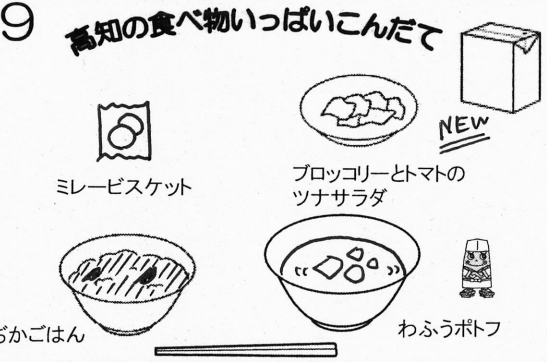 9
高知の食べ物いっぱいこんだて
NEW
ミレービスケット
ブロッコリーとトマトの
ツナサラダ
かごはん
わふうポトフ